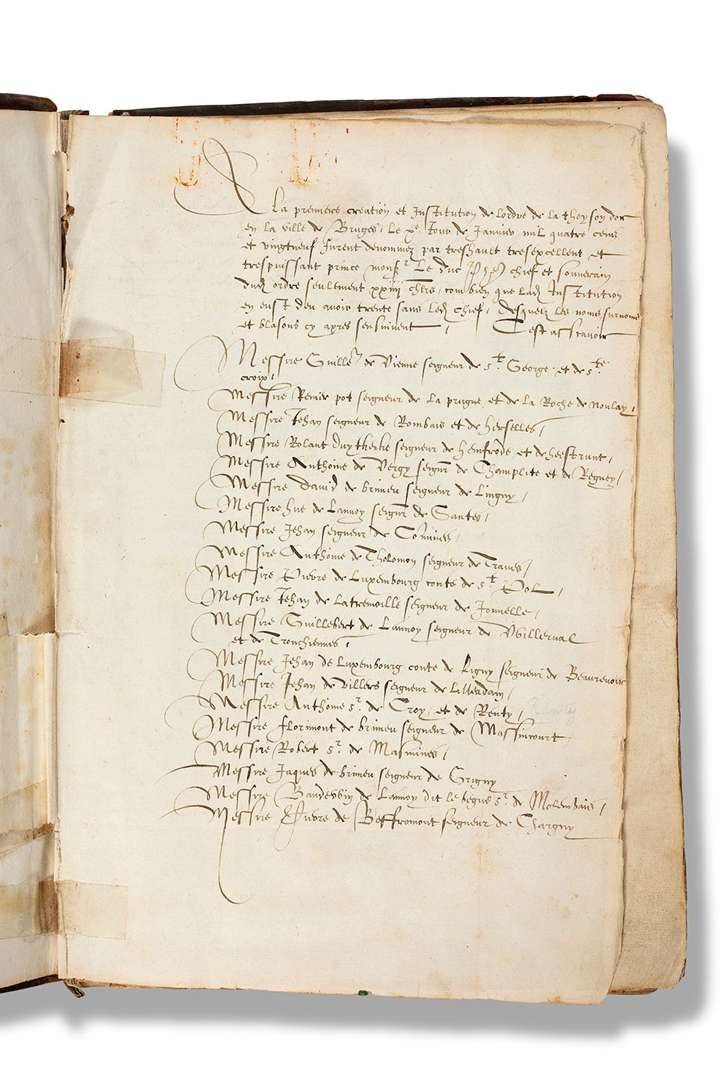 A la premiere creation et Institution de lordre de la thoyson dor
en la ville de Bruges, le xe Jour de Janvier mil quatre cens
et vingtneuf furent denommez par treshault tresexcellent et
trespuissant prince monsr Le duc chief et souverain
dudt ordre seulement xxiiij chlrs, combien que ladt Institution
en eust deu avoir trente sans ledt chief, desquelz les noms surnoms
et blasons cy apres sensuivent, Cest assavoir
Messire Guille de Vienne seigneur de st George et de ste
croix,
Messire Renier pot seigneur de la prugne et de la Roche de Noulay,
Messire Jehan seigneur de Rombais et de herselles,
Messire Rolant duytkerke seigneur de hemsrode et de heestrunt,
Messire Anthoine de Vergy seignr de Champlite et de Rigney,
Messire David de brimeu seigneur de Ligny,
Messire hue de Lannoy seignr de Santes,
Messire Jehan seigneur de Comines,
Messire Anthoine de Tholomon seigneur de Traves,
Messire Pierre de Luxembourg conte de st Pol,
Messire Jehan de Latremoille seigneur de Jonnelle,
Messire Guillebert de Lannoy seigneur de Willerval
et de Tronchiennes,
Messire Jehan de Luxembourg conte de Ligny seigneur de Beaurevoir
Messire Jehan de Villers seigneur de Lilleadam,
Messire Anthoine sr de Croy et de Renty,
Messire Florimont de brimeu seigneur de Massincourt
Messire Robert sr de Masmines,
Messire Jaques de brimeu seigneur de Grigny
Messire Baudewin de Lannoy dit le begue sr de Molembais,
Messire Pierre de Beffromont seigneur de Chargny